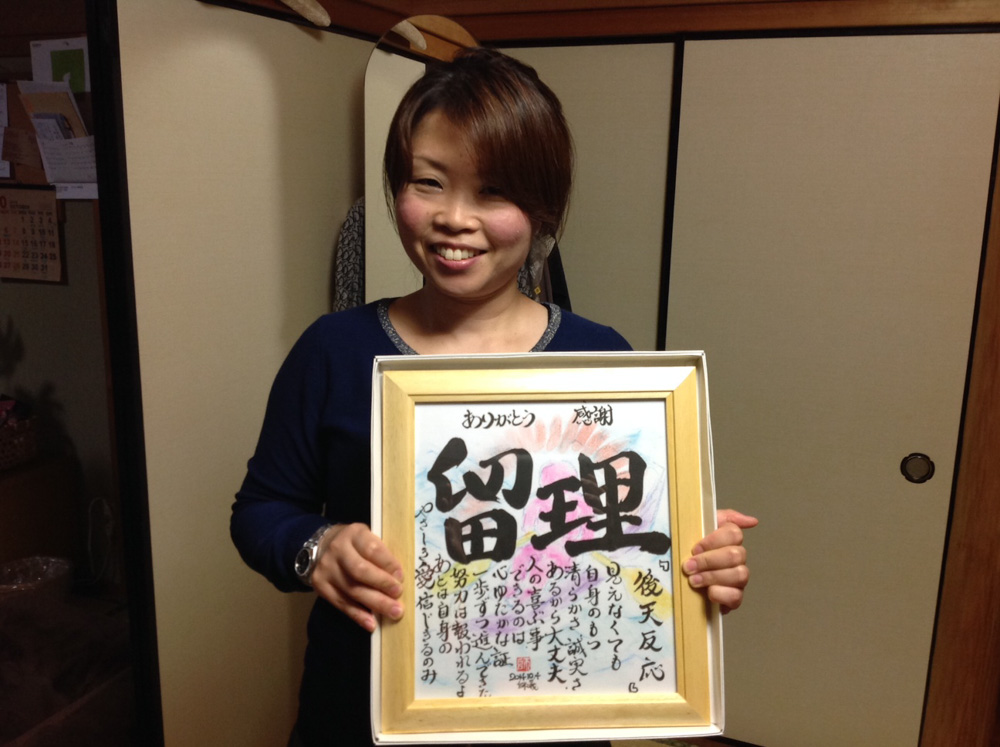 ありがとう 感謝
留理
「後天反応」
見えなくても
自身のもつ
清らかさ、誠実さ
あるから大丈夫。
人の喜ぶ事
できるのは
心ゆたかな証
一歩ずつ進んできた
努力は報われるよ
あとは自身の
やさしさ愛信じきるのみ
2014.10.4